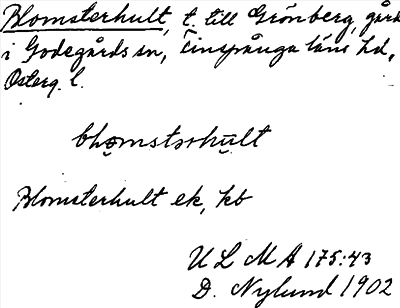 Blomsterhult, t. till Grönberg, gård
i Godegårds sn, Finspånga läns hd,
Österg. l.
blomstərhult
Blomsterhult ek, kb
U L M A 175:43
D. Nylund 1902